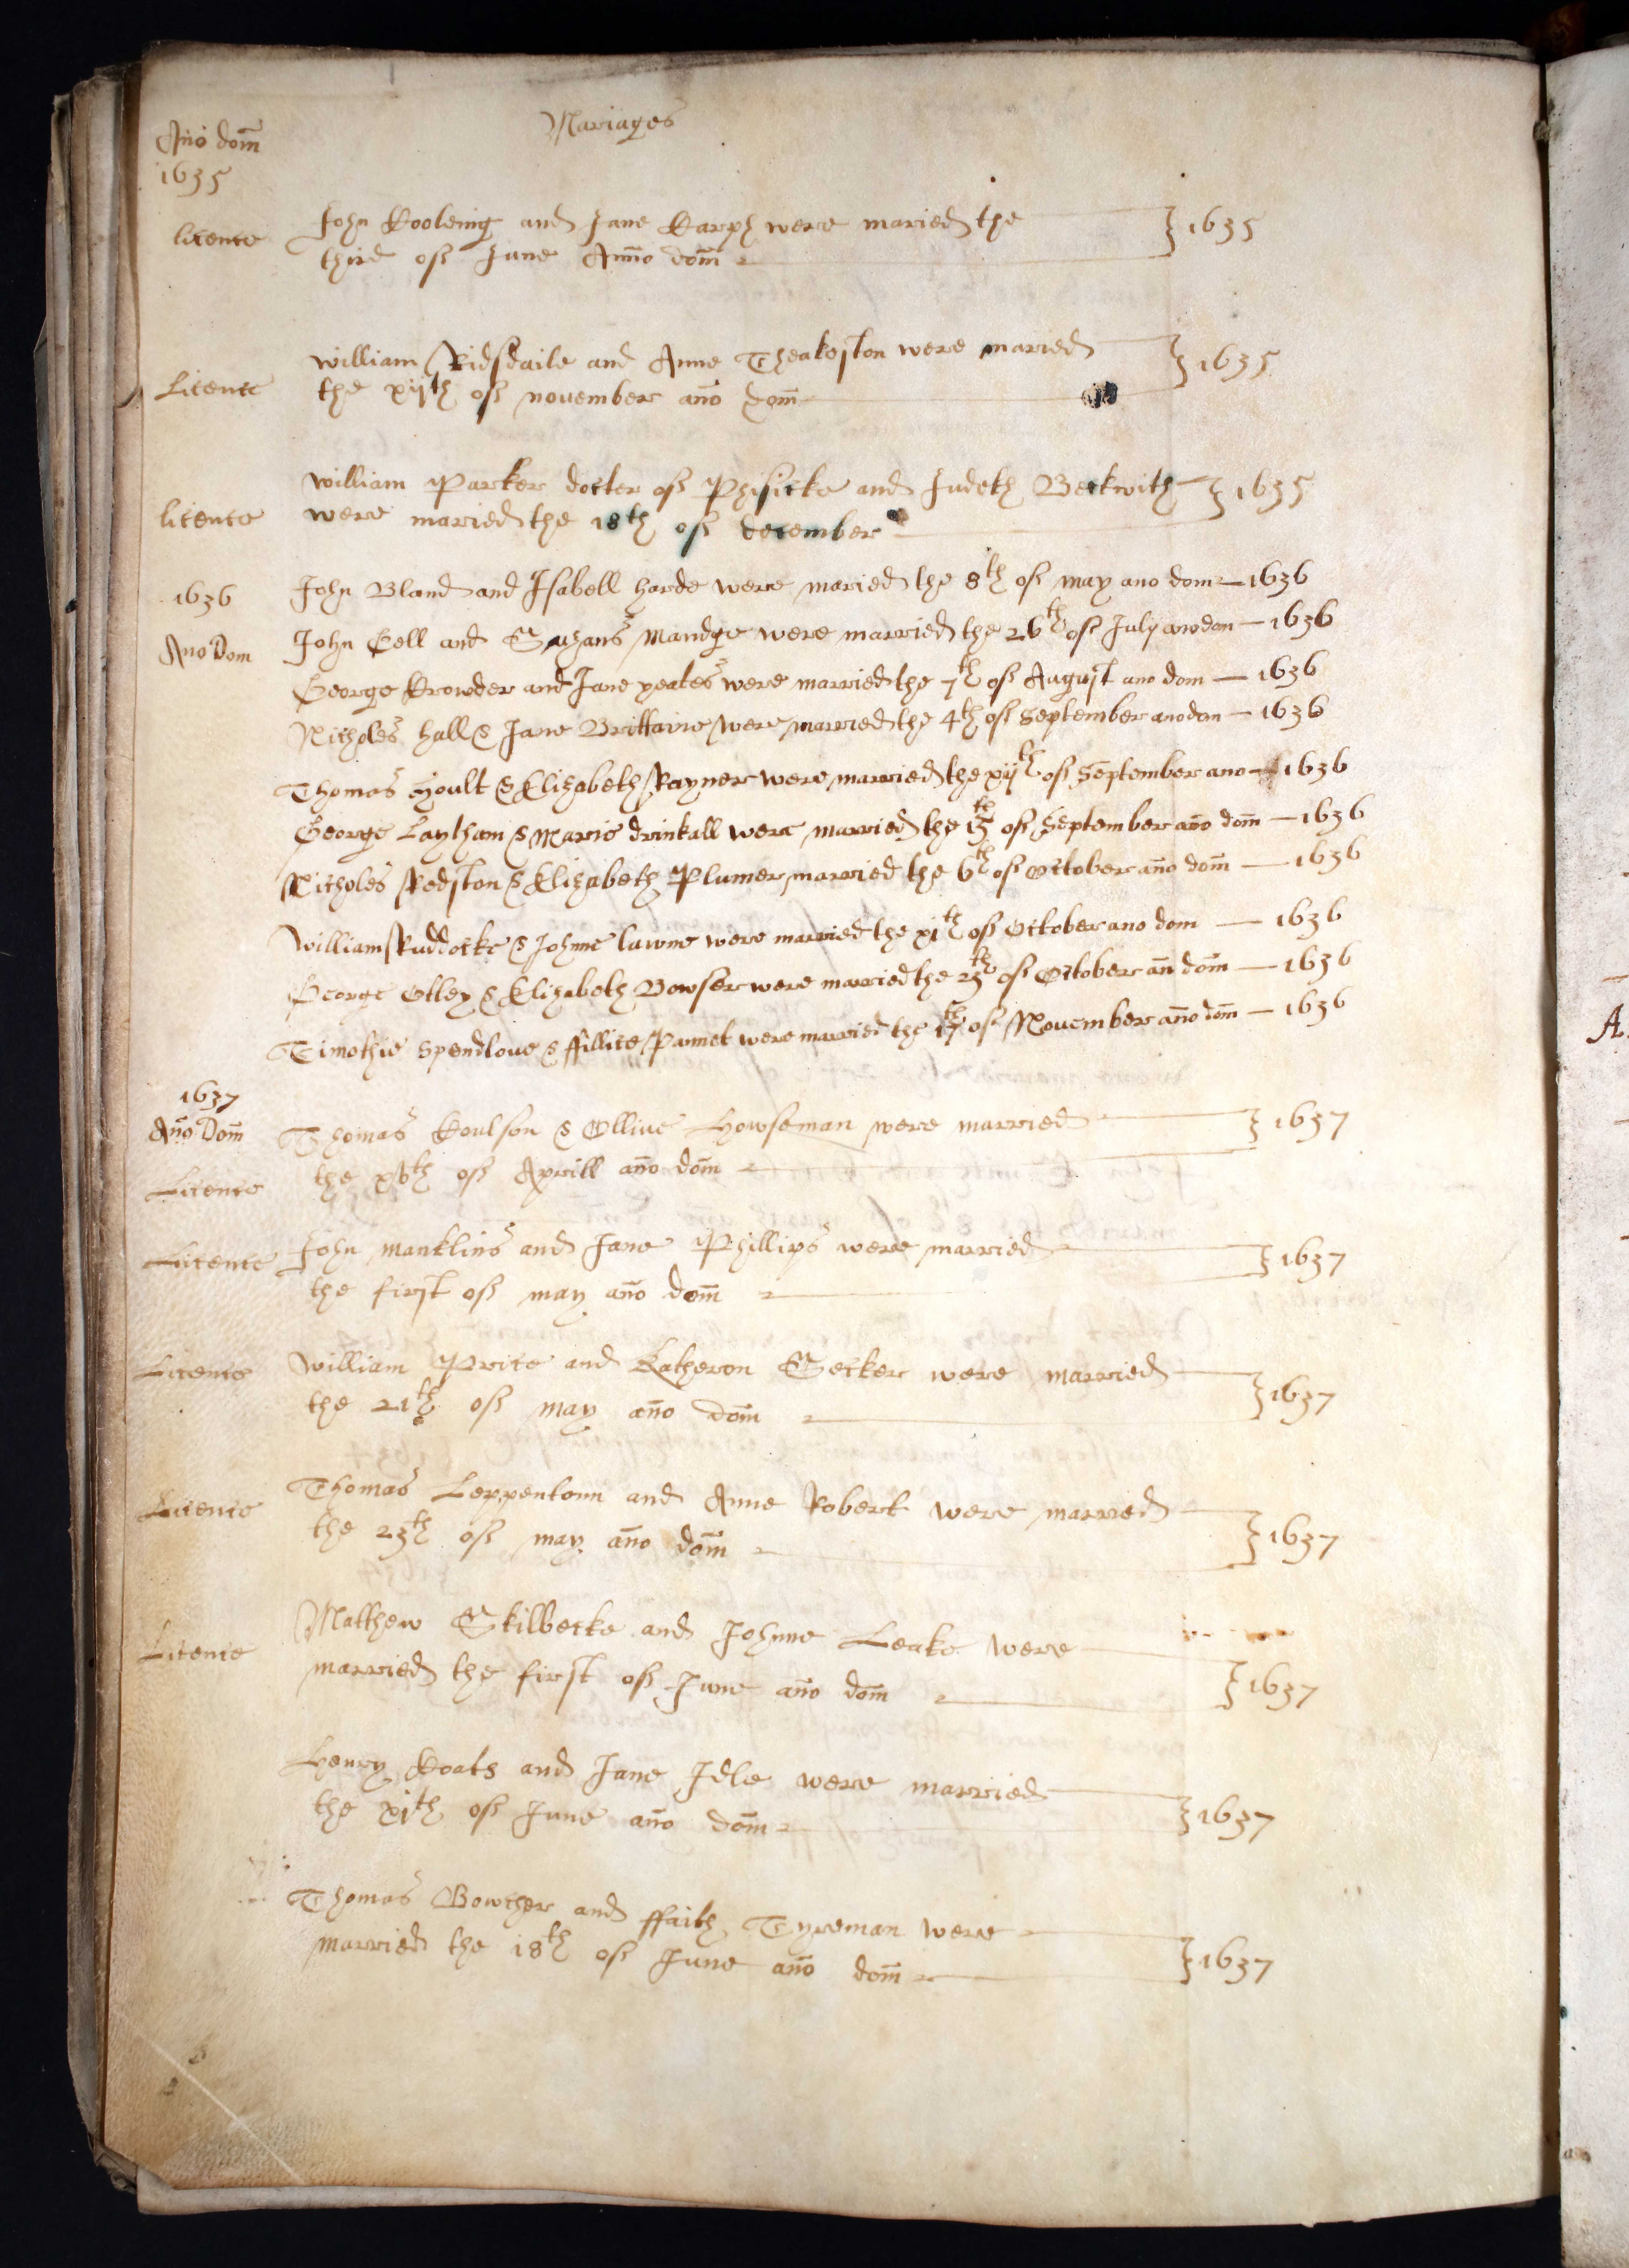 Mariages
Ano dom̄
1635
licence John Kooleing and Jane Earph were maried the } 1635
third off June Anno dom̄
Licence William Ridsdaile and Anne Theakoston were maried } 1635
the xijth off november ano dom̄
licence William Parker docter off Phisicke and Judeth Beckwith } 1635
were maried the 18th off december
1636 John Bland and Isabell harde were maried the 8th off may ano dom — 1636
Ano Dom John Cell and Suzans Mandge were married the 26th off July ano dom — 1636
George Krowder and Jane yeates were married the 7th off August ano dom — 1636
Nicholes hall & Jane Brittaine were married the 4th off September ano dom — 1636
Thomas Hoult & Elizabeth Rayner were married the xijth off September ano — 1636
George Laytham & Marie drinkall were married the 13th off September ano dom̄ — 1636
Nicholes Redston & Elizabeth Plumer married the 6th off October ano dom̄ — 1636
William Ruddocke & Johnne lawne were married the xith off October ano dom — 1636
George Otley & Elizabeth Bowser were married the 23th off October an̄ dom̄ — 1636
Timothie Spendloue & ffillice Pannet were married the 17th off November ano dom̄ — 1636
1637
Ano Dom̄ Thomas Koulson & Ollive Howseman were married } 1637
Licence the xvth off Aprill ano dom̄
Licence John manklins and Jane Phillips were married } 1637
the first off may ano dom̄
Licence William Price and Katheron Secker were married } 1637
the 21th off may ano dom̄
Licence Thomas Leppentonn and Anne Robert were married } 1637
the 23th off may ano dom̄
Licence Matthew Skilbecke and Johnne Leake were } 1637
married the first off June ano dom̄
Henry Koats and Jane Idle were married } 1637
the xith off June ano dom̄
Thomas Bowcher and ffaith Tyreman were } 1637
married the 18th off June ano dom̄
A